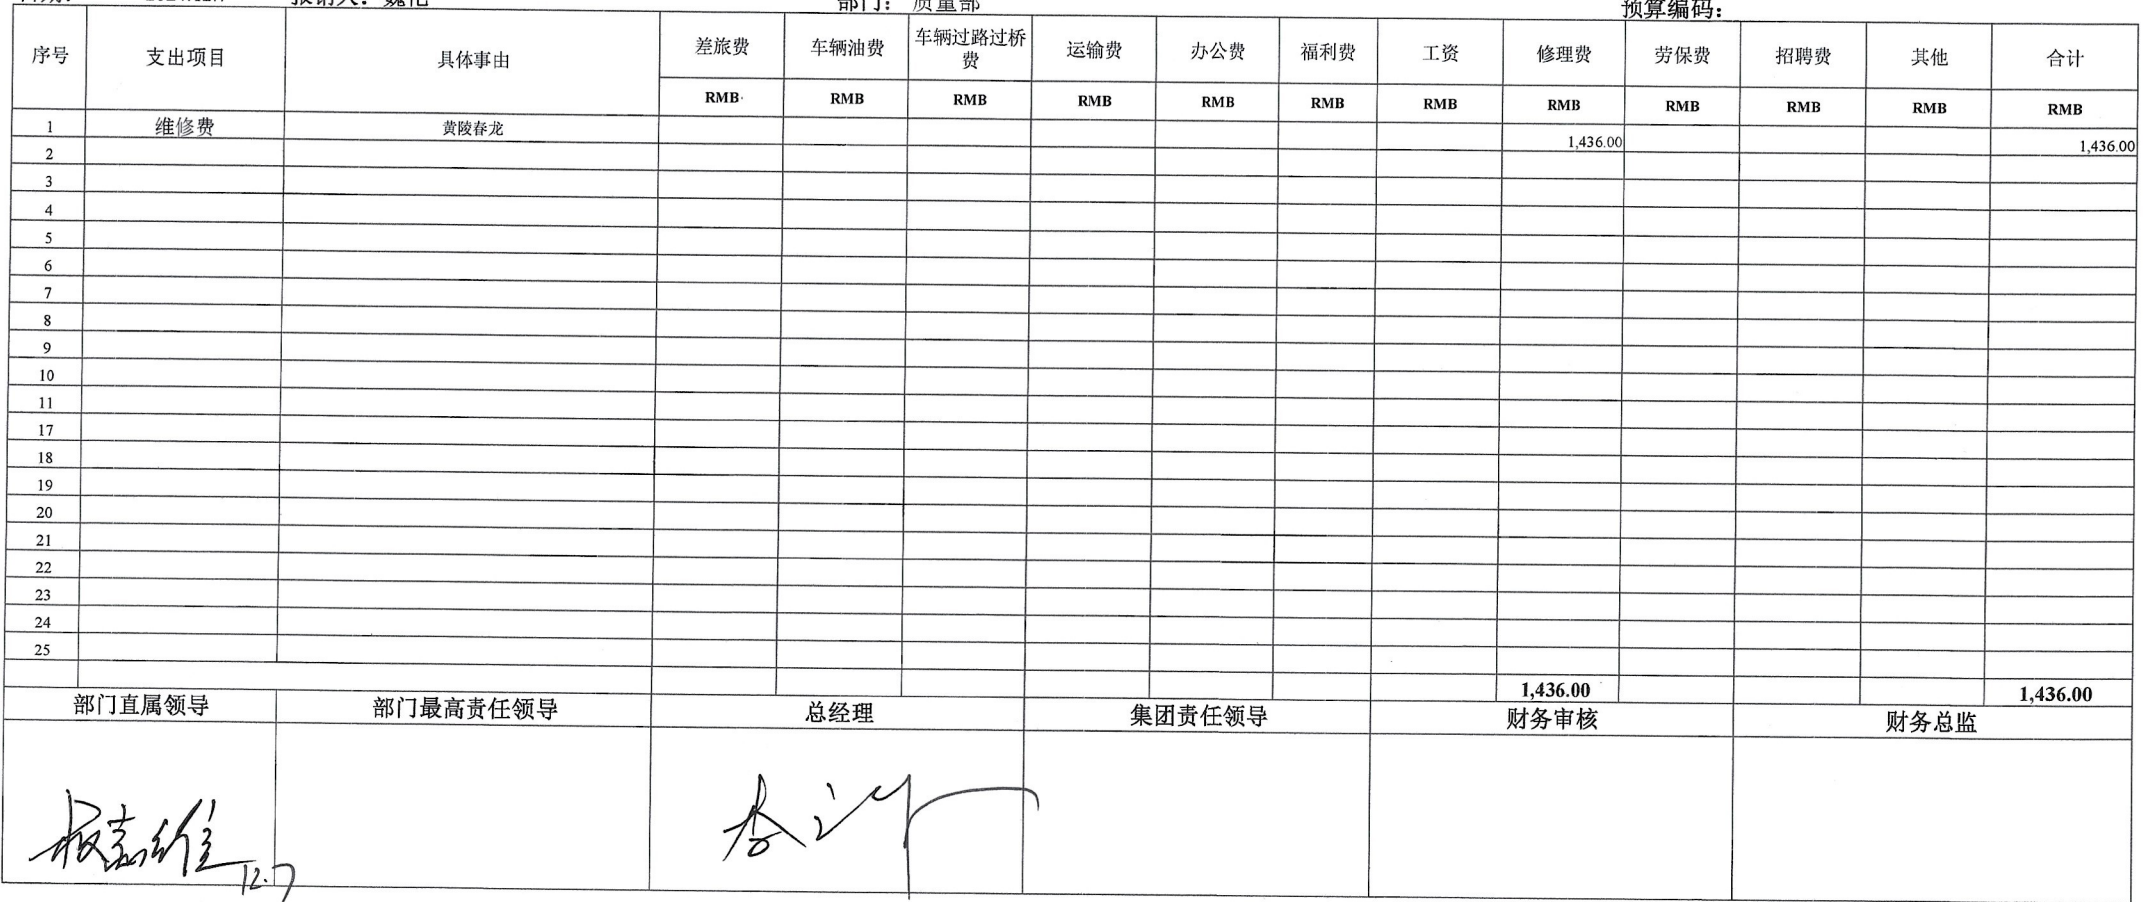 部门： 质量部 预算编码：
序号 支出项目 具体事由 差旅费 车辆油费 车辆过路过桥费 运输费 办公费 福利费 工资 修理费 劳保费 招聘费 其他 合计
RMB RMB RMB RMB RMB RMB RMB RMB RMB RMB RMB RMB
1 维修费 黄陵春龙 1,436.00 1,436.00
2
3
4
5
6
7
8
9
10
11
17
18
19
20
21
22
23
24
25
1,436.00 1,436.00
部门直属领导 部门最高责任领导 总经理 集团责任领导 财务审核 财务总监
12.7